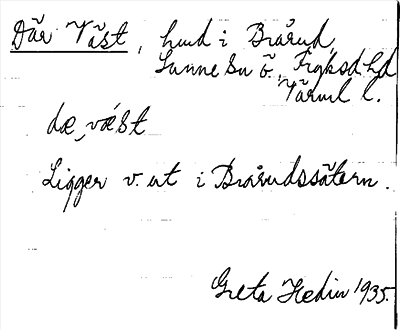 Där Väst, hmd i Brårud,
Sunne sn ö., Fryksd. hd
Värml. l.
dæ, vǽst
Ligger v. ut i Brårudssätern.
Greta Hedin 1935.